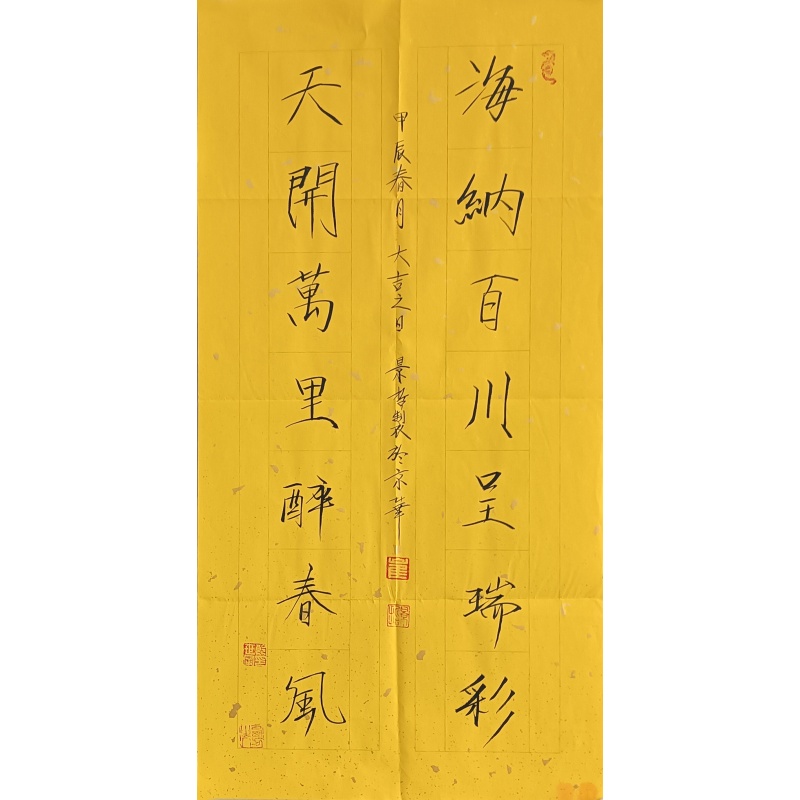 海納百川呈瑞彩
甲辰春月 大吉之日 景孝製於京華
天開萬里醉春風